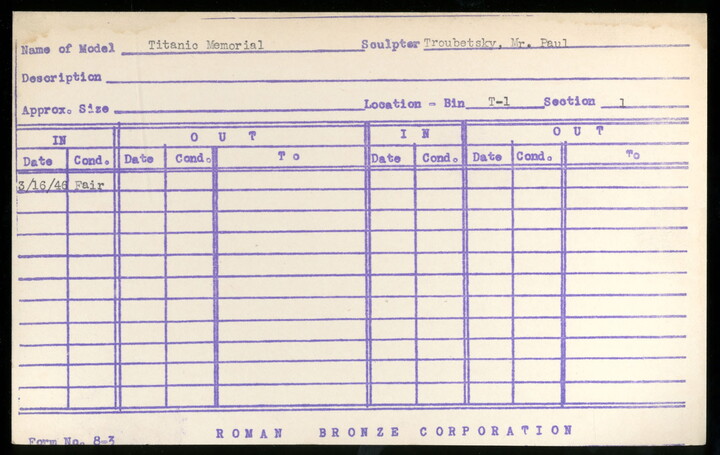 Name of Model Titanic Memorial Sculptor Troubetsky, Mr. Paul
Description
Approx. Size Location - Bin T-1 Section 1
IN OUT IN OUT
Date Cond. Date Cond. To Date Cond. Date Cond. To
3/16/46 Fair
Form No. 8-3 ROMAN BRONZE CORPORATION